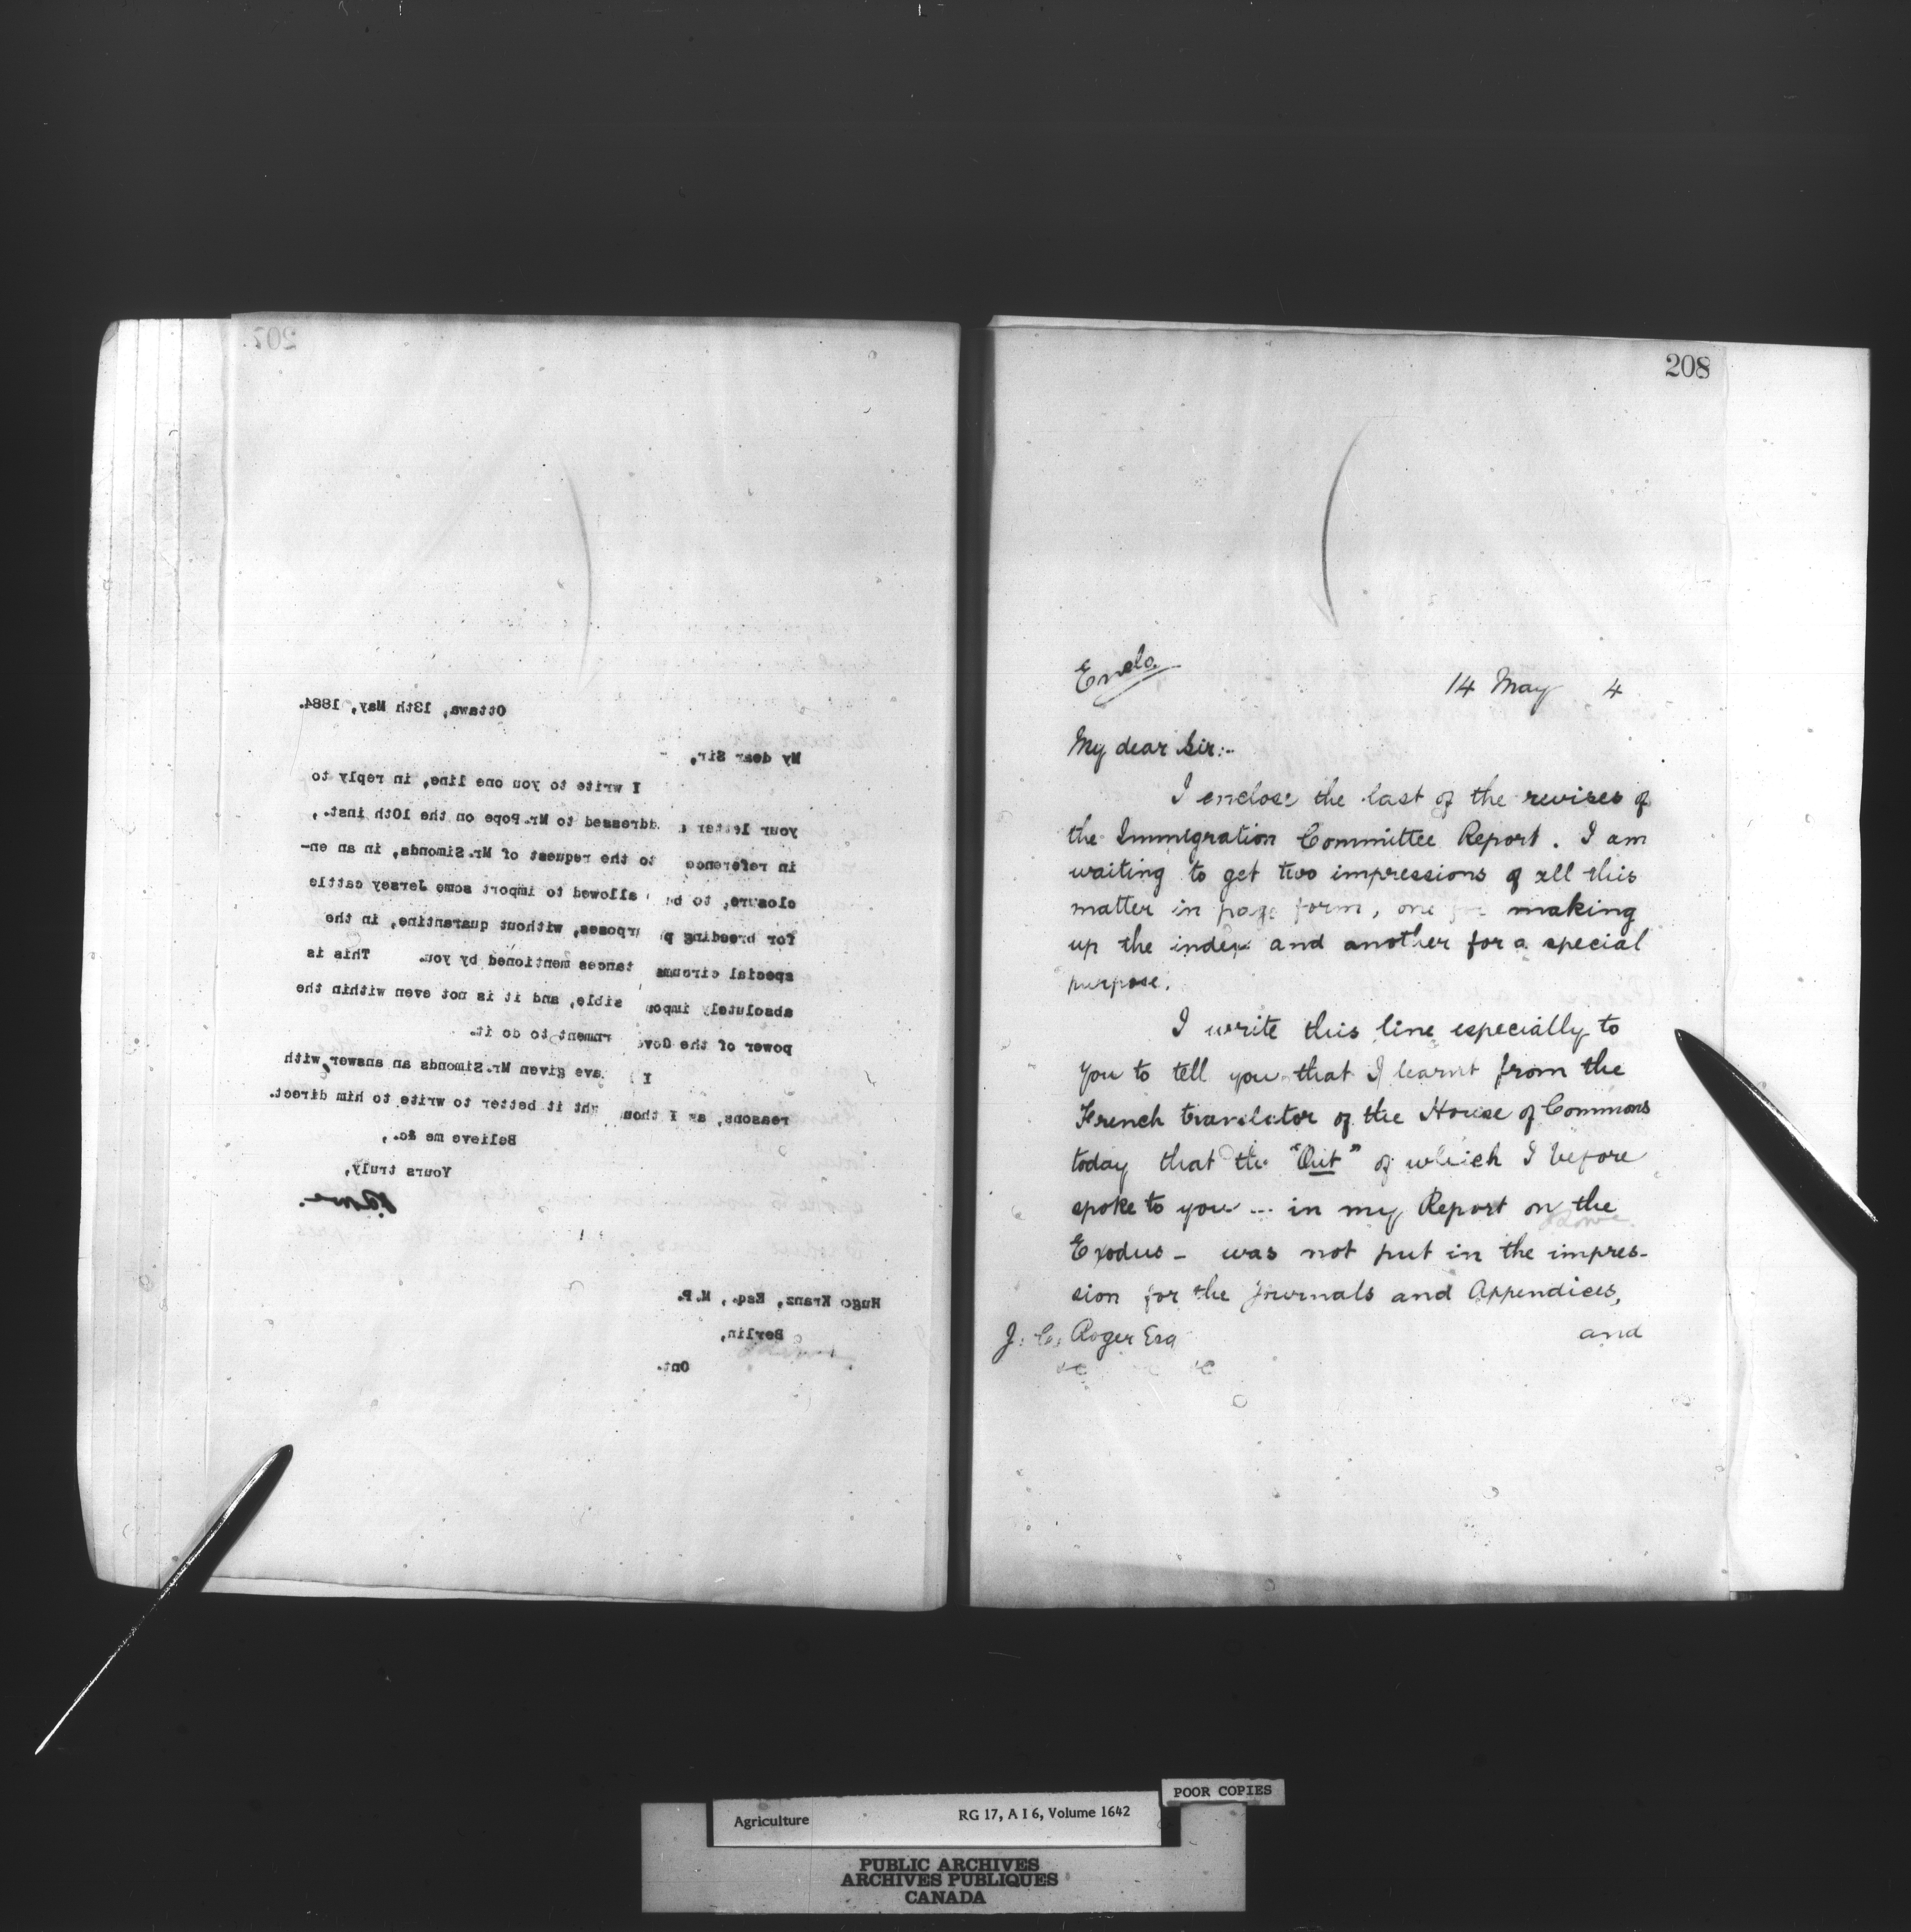 207
Ottawa, 13th May, 1884.
My dear Sir, -
I write to you one line, in reply to
your letter addressed to Mr. Pope on the 10th inst.,
in reference to the request of Mr. Simonds, in an en-
closure, to be allowed to import some Jersey cattle
for breeding purposes, without quarantine, in the
special circumstances mentioned by you. This is
absolutely impossible, and it is not even within the
power of the Government to do it.
I have given Mr. Simonds an answer, with
reasons, as I thought it better to write to him direct.
Believe me &c.,
Yours truly,
J. Lowe.
Hugo Kranz, Esq., M.P.
Berlin,
Ont.
208
Enclo.
14 May 4
My dear Sir:-
I enclose the last of the revises of
the Immigration Committee Report. I am
waiting to get two impressions of all this
matter in page form, one for making
up the index and another for a special
purpose.
I write this line especially to
you to tell you that I learnt from the
French translator of the House of Commons
today that the "Out" of which I before
spoke to you -- in my Report on the
Exodus - was not put in the impres-
sion for the Journals and Appendices,
and
J. C. Roger Esq
&c &c
POOR COPIES
Agriculture RG 17, A I 6, Volume 1642
PUBLIC ARCHIVES
ARCHIVES PUBLIQUES
CANADA